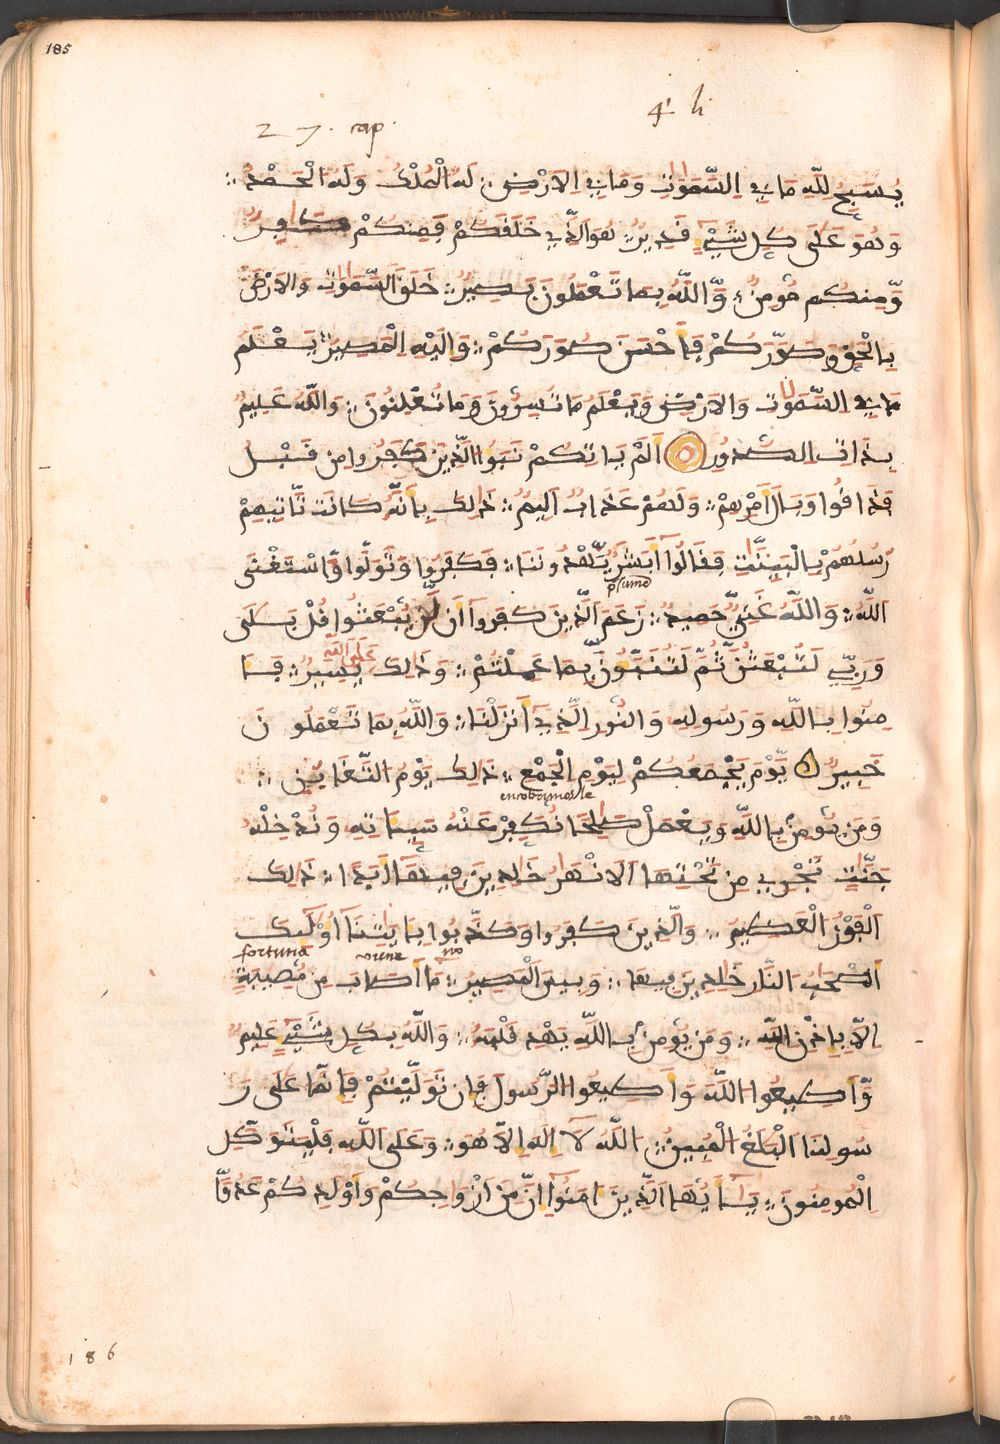 185
4 li
27. cap.
يُسَبِّحُ لِلَّهِ مَا فِي السَّمَوَاتِ وَمَا فِي الْارْضِ لَهُ الْمُلْكُ وَلَهُ الْحَمْدُ
وَهُوَ عَلَى كُلِّ شَيْءٍ قَدِيرٌ هُوَ الَّذِي خَلَقَكُمْ فَمِنكُمْ كَافِرٌ
وَّمِنكُم مُّومِنٌ وَّاللَّهُ بِمَا تَعْمَلُونَ بَصِيرٌ خَلَقَ السَّمَوَاتِ وَالارْضَ
بِالْحَقِّ وَصَوَّرَكُمْ فَأَحْسَنَ صُوَرَكُمْ وَإِلَيْهِ الْمَصِيرُ يَعْلَمُ
مَا فِي السَّمَوَاتِ وَالارْضِ وَيَعْلَمُ مَا تُسِرُّونَ وَمَا تُعْلِنُونَ وَاللَّهُ عَلِيمٌ
بِذَاتِ الصُّدُورِ أَلَمْ يَاتِكُمْ نَبَؤُا الَّذِينَ كَفَرُوا مِن قَبْلُ
فَذَاقُوا وَبَالَ أَمْرِهِمْ وَلَهُمْ عَذَابٌ أَلِيمٌ ذَالِكَ بِأَنَّهُ كَانَت تَّاتِيهِمْ
رُسُلُهُم بِالْبَيِّنَاتِ فَقَالُوا أَبَشَرٌ يَهْدُونَنَا فَكَفَرُوا وَتَوَلَّوا وَّاسْتَغْنَى
اللَّهُ وَاللَّهُ غَنِيٌّ حَمِيدٌ زَعَمَ الَّذِينَ كَفَرُوا أَن لَّن يُّبْعَثُوا قُلْ بَلَى
وَرَبِّي لَتُبْعَثُنَّ ثُمَّ لَتُنَبَّؤُنَّ بِمَا عَمِلْتُمْ وَذَالِكَ عَلَى اللَّهِ يَسِيرٌ فَـَٔا
مِنُوا بِاللَّهِ وَرَسُولِهِ وَالنُّورِ الَّذِي أَنزَلْنَا وَاللَّهُ بِمَا تَعْمَلُونَ
خَبِيرٌ يَوْمَ يَجْمَعُكُمْ لِيَوْمِ الْجَمْعِ ذَالِكَ يَوْمُ التَّغَابُنِ
وَمَن يُومِن بِاللَّهِ وَيَعْمَلْ صَالِحًا نُكَفِّرْ عَنْهُ سَيِّـَٔاتِهِ وَنُدْخِلْهُ
جَنَّاتٍ تَجْرِي مِن تَحْتِهَا الانْهَارُ خَالِدِينَ فِيهَا أَبَدًا ذَالِكَ
الْفَوْزُ الْعَظِيمُ وَالَّذِينَ كَفَرُوا وَكَذَّبُوا بِـَٔايَاتِنَا أُوْلَئِكَ
fortuna viene no
أَصْحَابُ النَّارِ خَالِدِينَ فِيهَا وَبِيسَ الْمَصِيرُ مَا أَصَابَ مِن مُّصِيبَةٍ
إِلَّا بِإِذْنِ اللَّهِ وَمَن يُومِن بِاللَّهِ يَهْدِ قَلْبَهُ وَاللَّهُ بِكُلِّ شَيْءٍ عَلِيمٌ
وَّأَطِيعُوا اللَّهَ وَأَطِيعُوا الرَّسُولَ فَإِن تَوَلَّيْتُمْ فَإِنَّمَا عَلَى رَ
سُولِنَا الْبَلَاغُ الْمُبِينُ اللَّهُ لَا إِلَهَ إِلَّا هُوَ وَعَلَى اللَّهِ فَلْيَتَوَكَّلِ
الْمُومِنُونَ يَـٰأَيُّهَا الَّذِينَ ءَامَنُوا إِنَّ مِنَ أَزْوَاجِكُمْ وَأَوْلَادِكُمْ عَدُوًّا
186